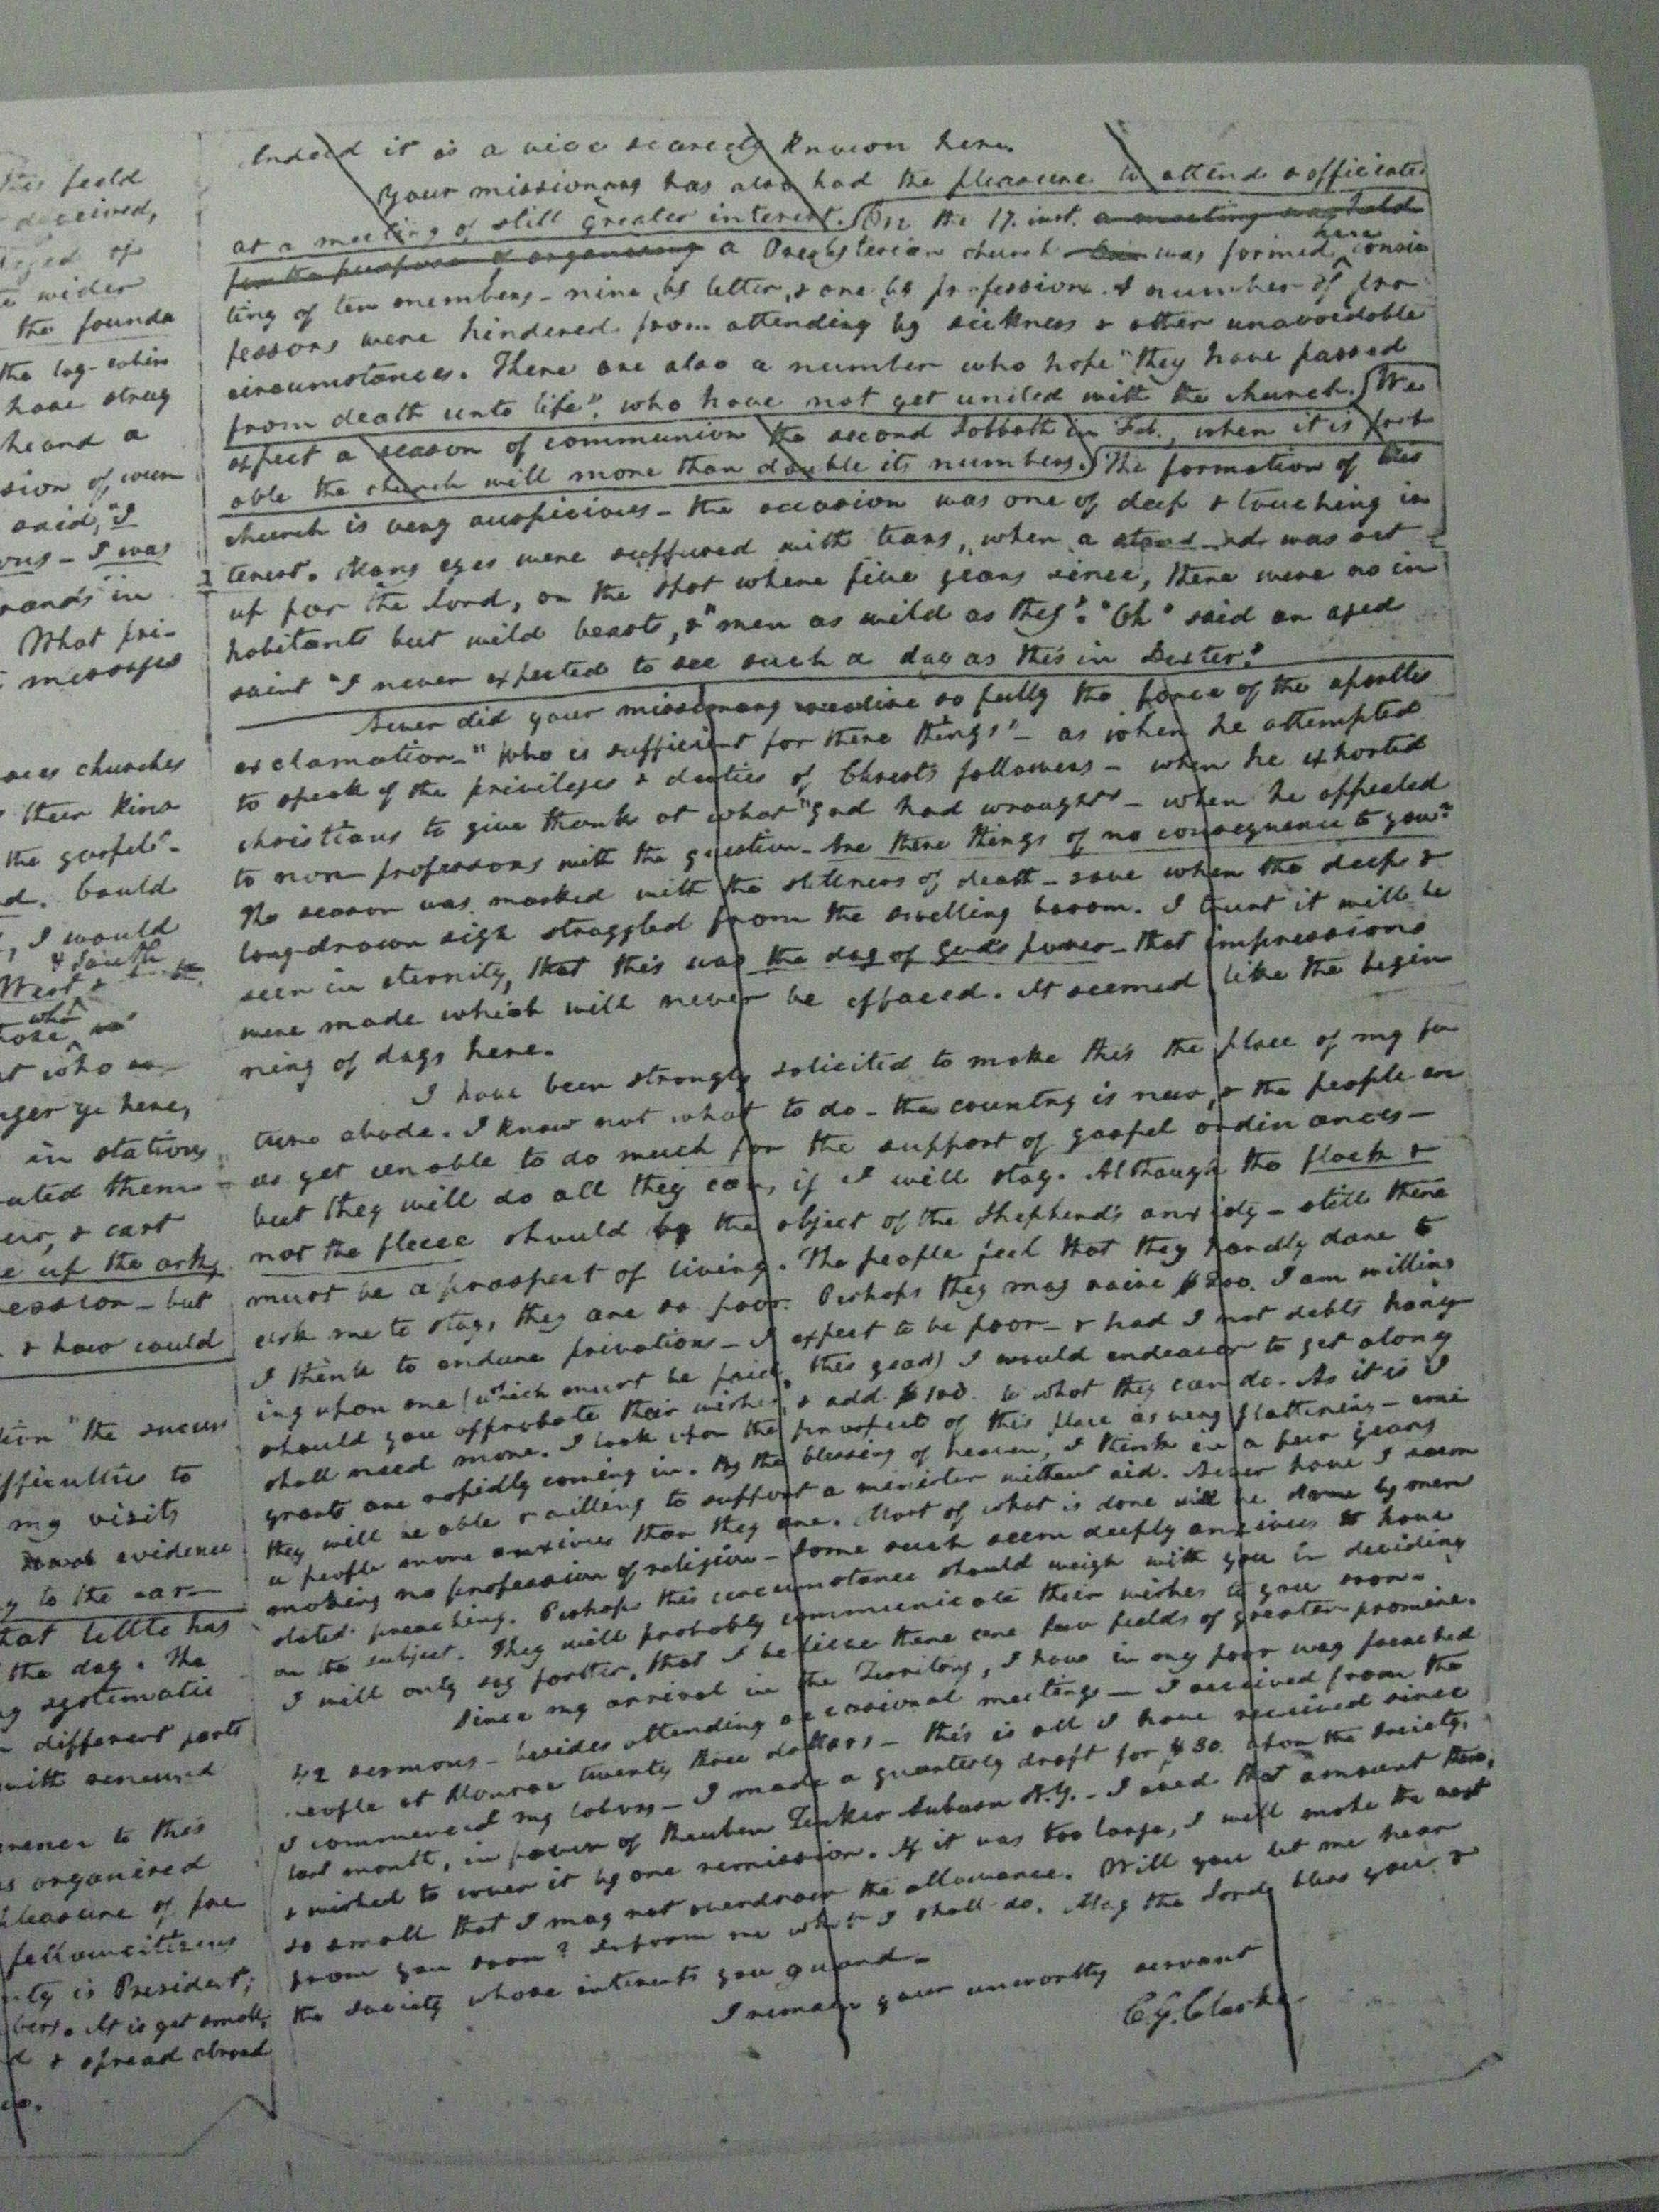 this field
deceived,
of
wider
the founda
the log-cabin
have strug
heard a
sion of
said, "I
ous - I was
rands" in
What pri-
messages
churches
their kind
the gospel" -
d. Could
, I would
& South
West &
who
those
at who
nger ye here,
in stations
ated them -
, & cast
e up the ark,
ession - but
& how could
tion "the
fficulties to
my visits
evidence
y to the ear -
that little has
the day. The
g systematic
different parts
with
rence to this
s organized
pleasure of
fellow citizens
nty is President;
bers. It is yet small,
d & spread abroad
Indeed it is a vice scarcely known here.
Your missionary has also had the pleasure to attend & officiate
at a meeting of still greater interest. On the 17. inst. a meeting was held
for the purpose of organizing a Presbyterian church was formed here consis
ting of ten members - nine by letter, & one by profession. A number of pro
fessors were hindered from attending by sickness & other unavoidable
circumstances. There are also a number who hope "they have passed
from death unto life", who have not yet united with the church. We
expect a season of communion the second Sabbath in Feb., when it is prob
able the church will more than double its numbers. The formation of this
church is very auspicious - the occasion was one of deep & touching in
terest. Many eyes were suffused with tears, when a standard was set
up for the Lord, on the spot where five years since, there were no in
habitants but wild beasts, & "men as wild as they". "Oh" said an aged
saint "I never expected to see such a day as this in Dexter."
Never did your missionary realize so fully the force of the apostles
exclamation - "Who is sufficient for these things" - as when he attempted
to speak of the privileges & duties of Christ's followers - when he exhorted
christians to give thanks at what "God had wrought" - when he appealed
to non-professors with the question - Are these things of no consequence to you?"
The season was marked with the stillness of death - save when the deep &
long-drawn sigh straggled from the swelling bosom. I trust it will be
seen in eternity, that this was the day of God's power - that impressions
were made which will never be effaced. It seemed like the begin
ning of days here.
I have been strongly solicited to make this the place of my fu
ture abode. I know not what to do - the country is new, & the people are
as yet unable to do much for the support of gospel ordinances -
but they will do all they can, if I will stay. Although the flock &
not the fleece should be the object of the Shepherd's anxiety - still there
must be a prospect of living. The people feel that they hardly dare to
ask me to stay, they are so poor. Perhaps they may raise $200. I am willing
I think to endure privations - I expect to be poor - & had I not debts hang
ing upon me (which must be paid this year) I would endeavor to get along
should you approbate their wishes, & add $100. to what they can do. As it is I
shall need more. I look upon the prospects of this place as very flattering - emi
grants are rapidly coming in. By the blessing of heaven, I think in a few years
they will be able & willing to support a minister without aid. Never have I seen
a people more anxious than they are. Most of what is done will be done by men
making no profession of religion - some such seem deeply anxious to have
stated preaching. Perhaps this circumstance should weigh with you in deciding
on the subject. They will probably communicate their wishes to you soon -
I will only say further, that I believe there are few fields of greater promise.
Since my arrival in the Territory, I have in my poor way preached
42 sermons - besides attending occasional meetings - I received from the
people at Monroe twenty three dollars - this is all I have received since
I commenced my labors - I made a quarterly draft for $80. upon the Society,
last month, in favor of Reuben Tinker Auburn N.Y. - I owed that amount there,
& wished to cover it by one remission. If it was too large, I will make the next
so small that I may not overdraw the allowance. Will you let me hear
from you soon? Inform me what I shall do. May the Lord bless you &
the Society whose interests you guard -
I remain your unworthy servant
C. G. Clarke.